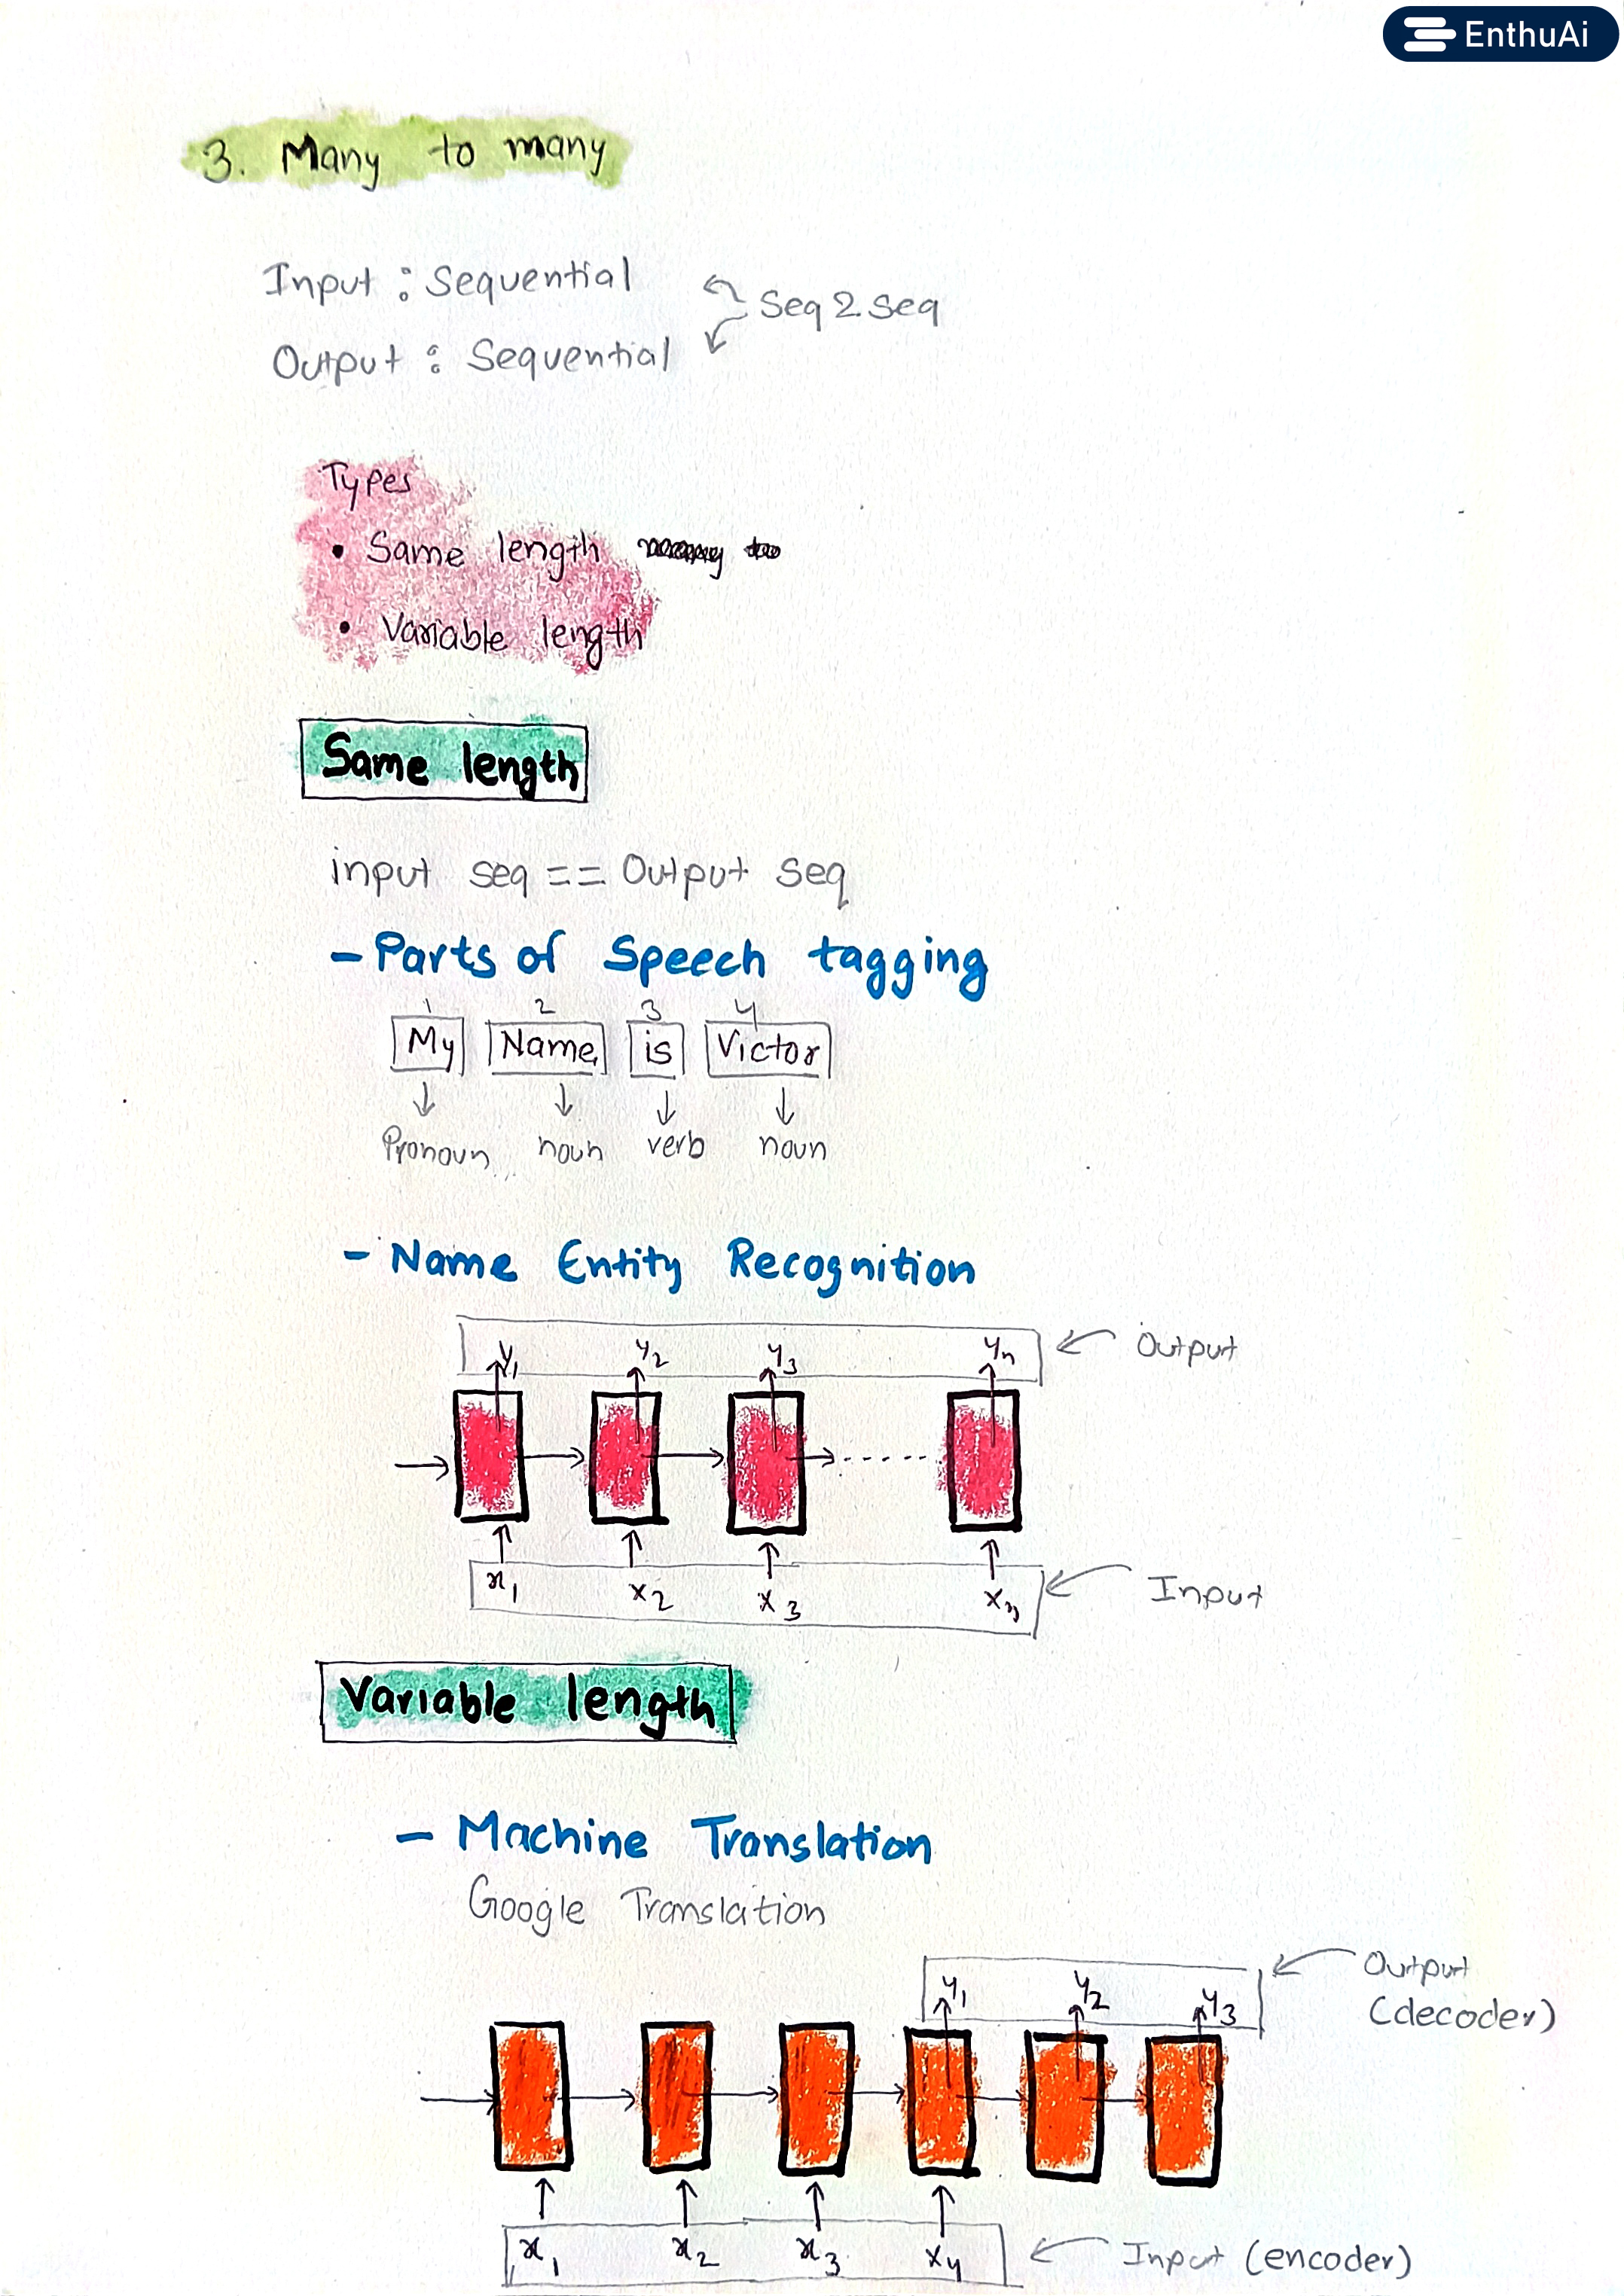 EnthuAi
3. Many to many
Input : Sequential
Seq 2 Seq
Output : Sequential
Types
• Same length
• Variable length
Same length
input seq == Output seq
- Parts of Speech tagging
1 2 3 4
My Name is Victor
Pronoun noun verb noun
- Name Entity Recognition
y1 y2 y3 yn Output
x1 x2 x3 xn Input
Variable length
- Machine Translation
Google Translation
y1 y2 y3 Output
(decoder)
x1 x2 x3 x4 Input (encoder)